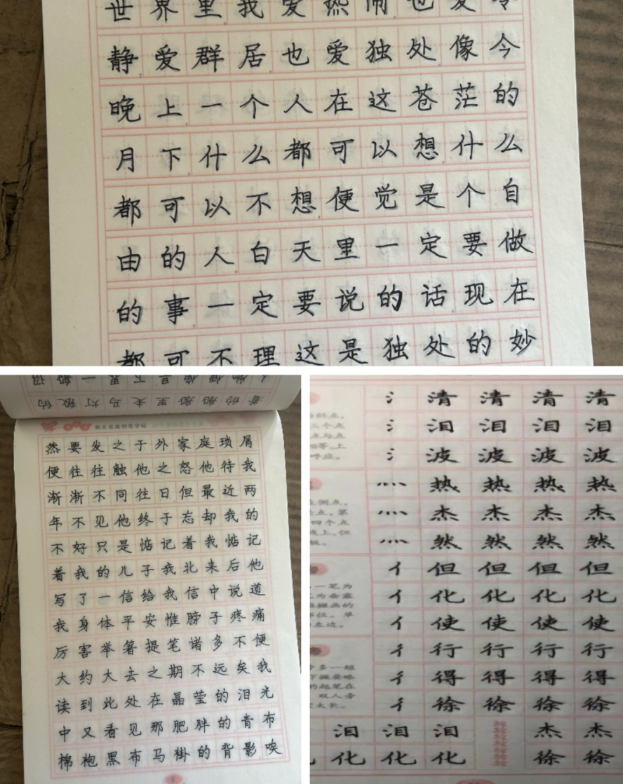 世界里我爱热闹也爱冷
静爱群居也爱独处像今
晚上一个人在这苍茫的
月下什么都可以想什么
都可以不想便觉是个自
由的人白天里一定要做
的事一定要说的话现在
都可不理这是独处的妙
然要发之于外家庭琐屑
便往往触他之怒他待我
渐渐不同往日但最近两
年不见他终于忘却我的
不好只是惦记着我惦记
着我的儿子我北来后他
写了一信给我信中说道
我身体平安惟膀子疼痛
厉害举箸提笔诸多不便
大约大去之期不远矣我
读到此处在晶莹的泪光
中又看见那肥胖的青布
棉袍黑布马褂的背影唉
氵 清 清 清 清
氵 泪 泪 泪 泪
氵 波 波 波 波
灬 热 热 热 热
灬 杰 杰 杰 杰
灬 然 然 然 然
亻 但 但 但 但
亻 化 化 化 化
亻 使 使 使 使
彳 行 行 行 行
彳 得 得 得 得
彳 徐 徐 徐 徐
泪 泪 泪 杰 杰
化 化 化 徐 徐